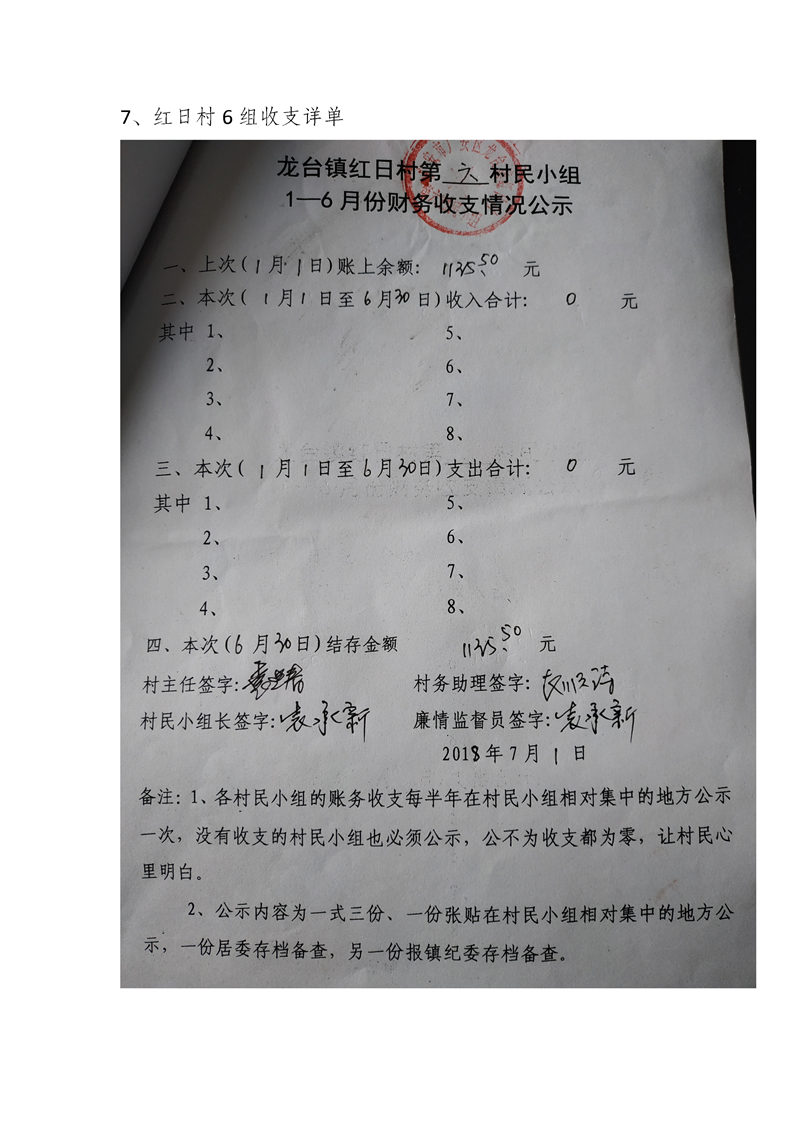 7、红日村6组收支详单
龙台镇红日村第六村民小组
1—6月份财务收支情况公示
一、上次(1月1日)账上余额: 1135.50 元
二、本次(1月1日至6月30日)收入合计: 0 元
其中 1、 5、
2、 6、
3、 7、
4、 8、
三、本次(1月1日至6月30日)支出合计: 0 元
其中 1、 5、
2、 6、
3、 7、
4、 8、
四、本次(6月30日)结存金额 1135.50 元
村主任签字: 村务助理签字:
村民小组长签字:袁承新 廉情监督员签字:袁承新
2018年7月1日
备注:1、各村民小组的账务收支每半年在村民小组相对集中的地方公示
一次,没有收支的村民小组也必须公示,公不为收支都为零,让村民心
里明白。
2、公示内容为一式三份、一份张贴在村民小组相对集中的地方公
示,一份居委存档备查,另一份报镇纪委存档备查。